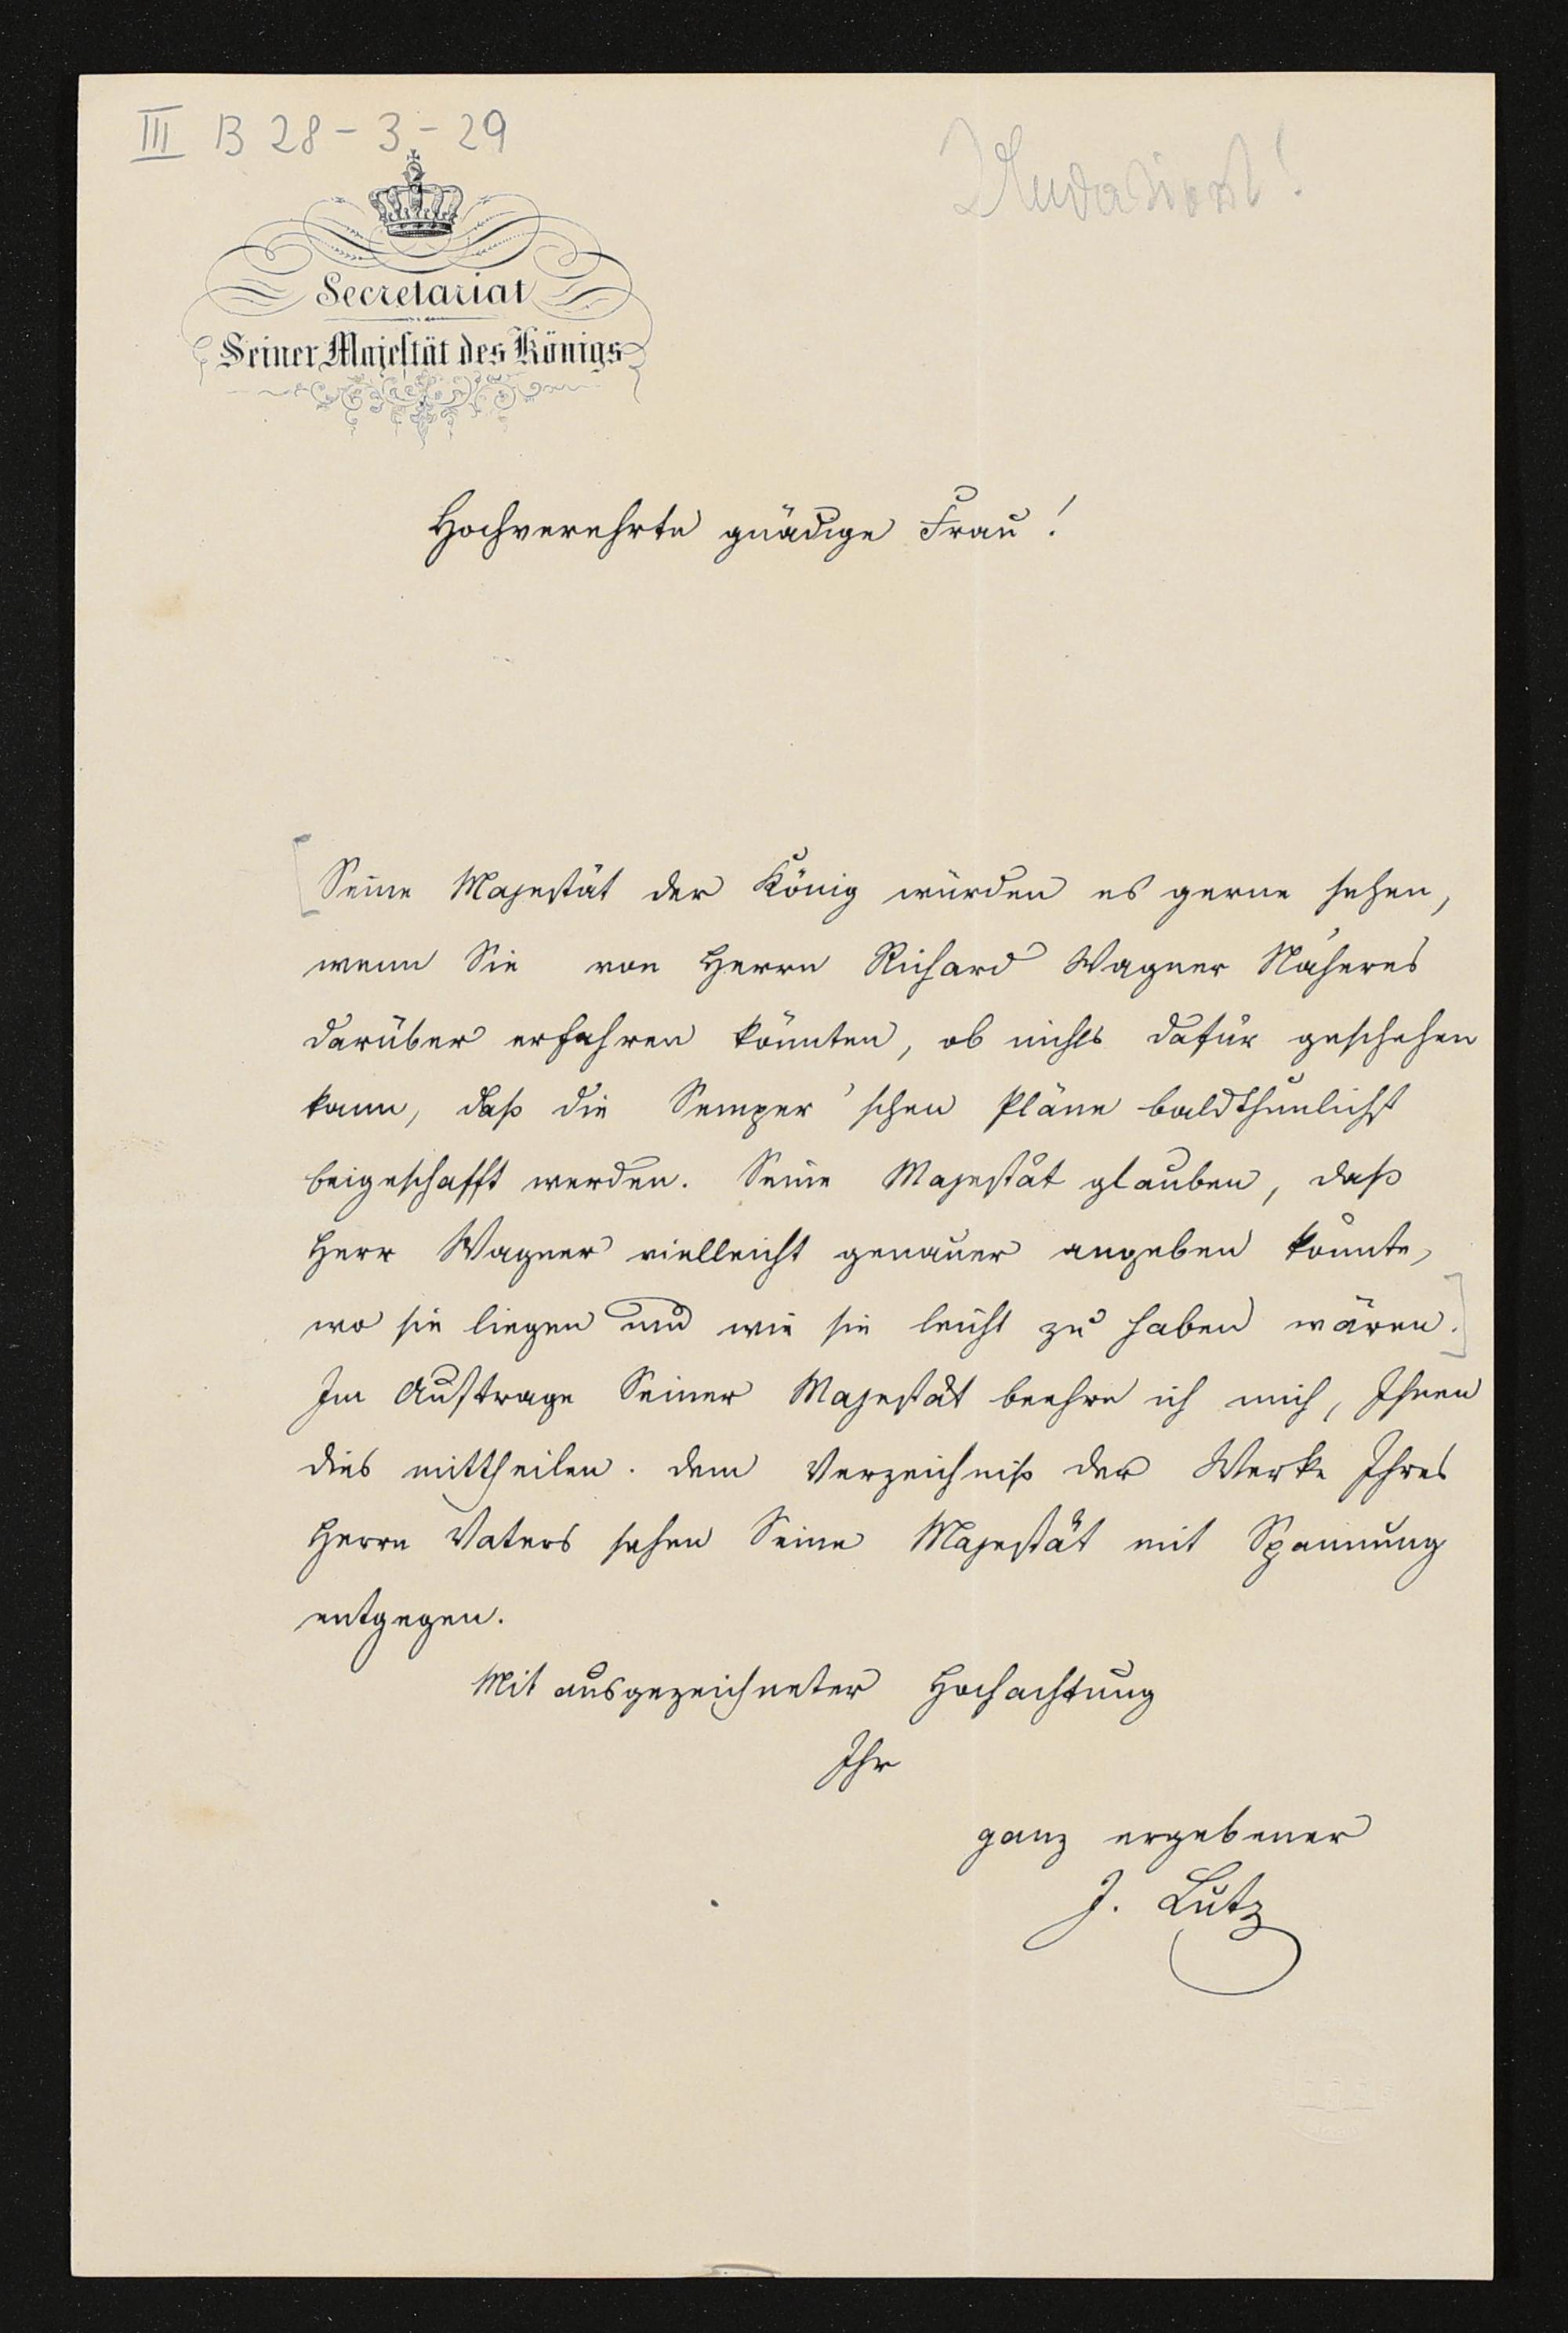 III B 28-3-29
Undatiert!
Secretariat
Seiner Majestät des Königs
Hochverehrte gnädige Frau!
[Seine Majestät der König würden es gerne sehen,
wenn Sie von Herrn Richard Wagner Näheres
darüber erfahren könnten, ob nichts dafür geschehen
kann, daß die Semper'schen Pläne baldthunlichst
beigeschafft werden. Seine Majestät glauben, daß
Herr Wagner vielleicht genauer angeben könnte,
wo sie liegen und wie sie leicht zu haben wären.]
Im Auftrage Seiner Majestät beehre ich mich, Ihnen
dies mittheilen. dem Verzeichniß der Werke Ihres
Herrn Vaters sehen Seine Majestät mit Spannung
entgegen.
Mit ausgezeichneter Hochachtung
Ihr
ganz ergebener
J. Lutz